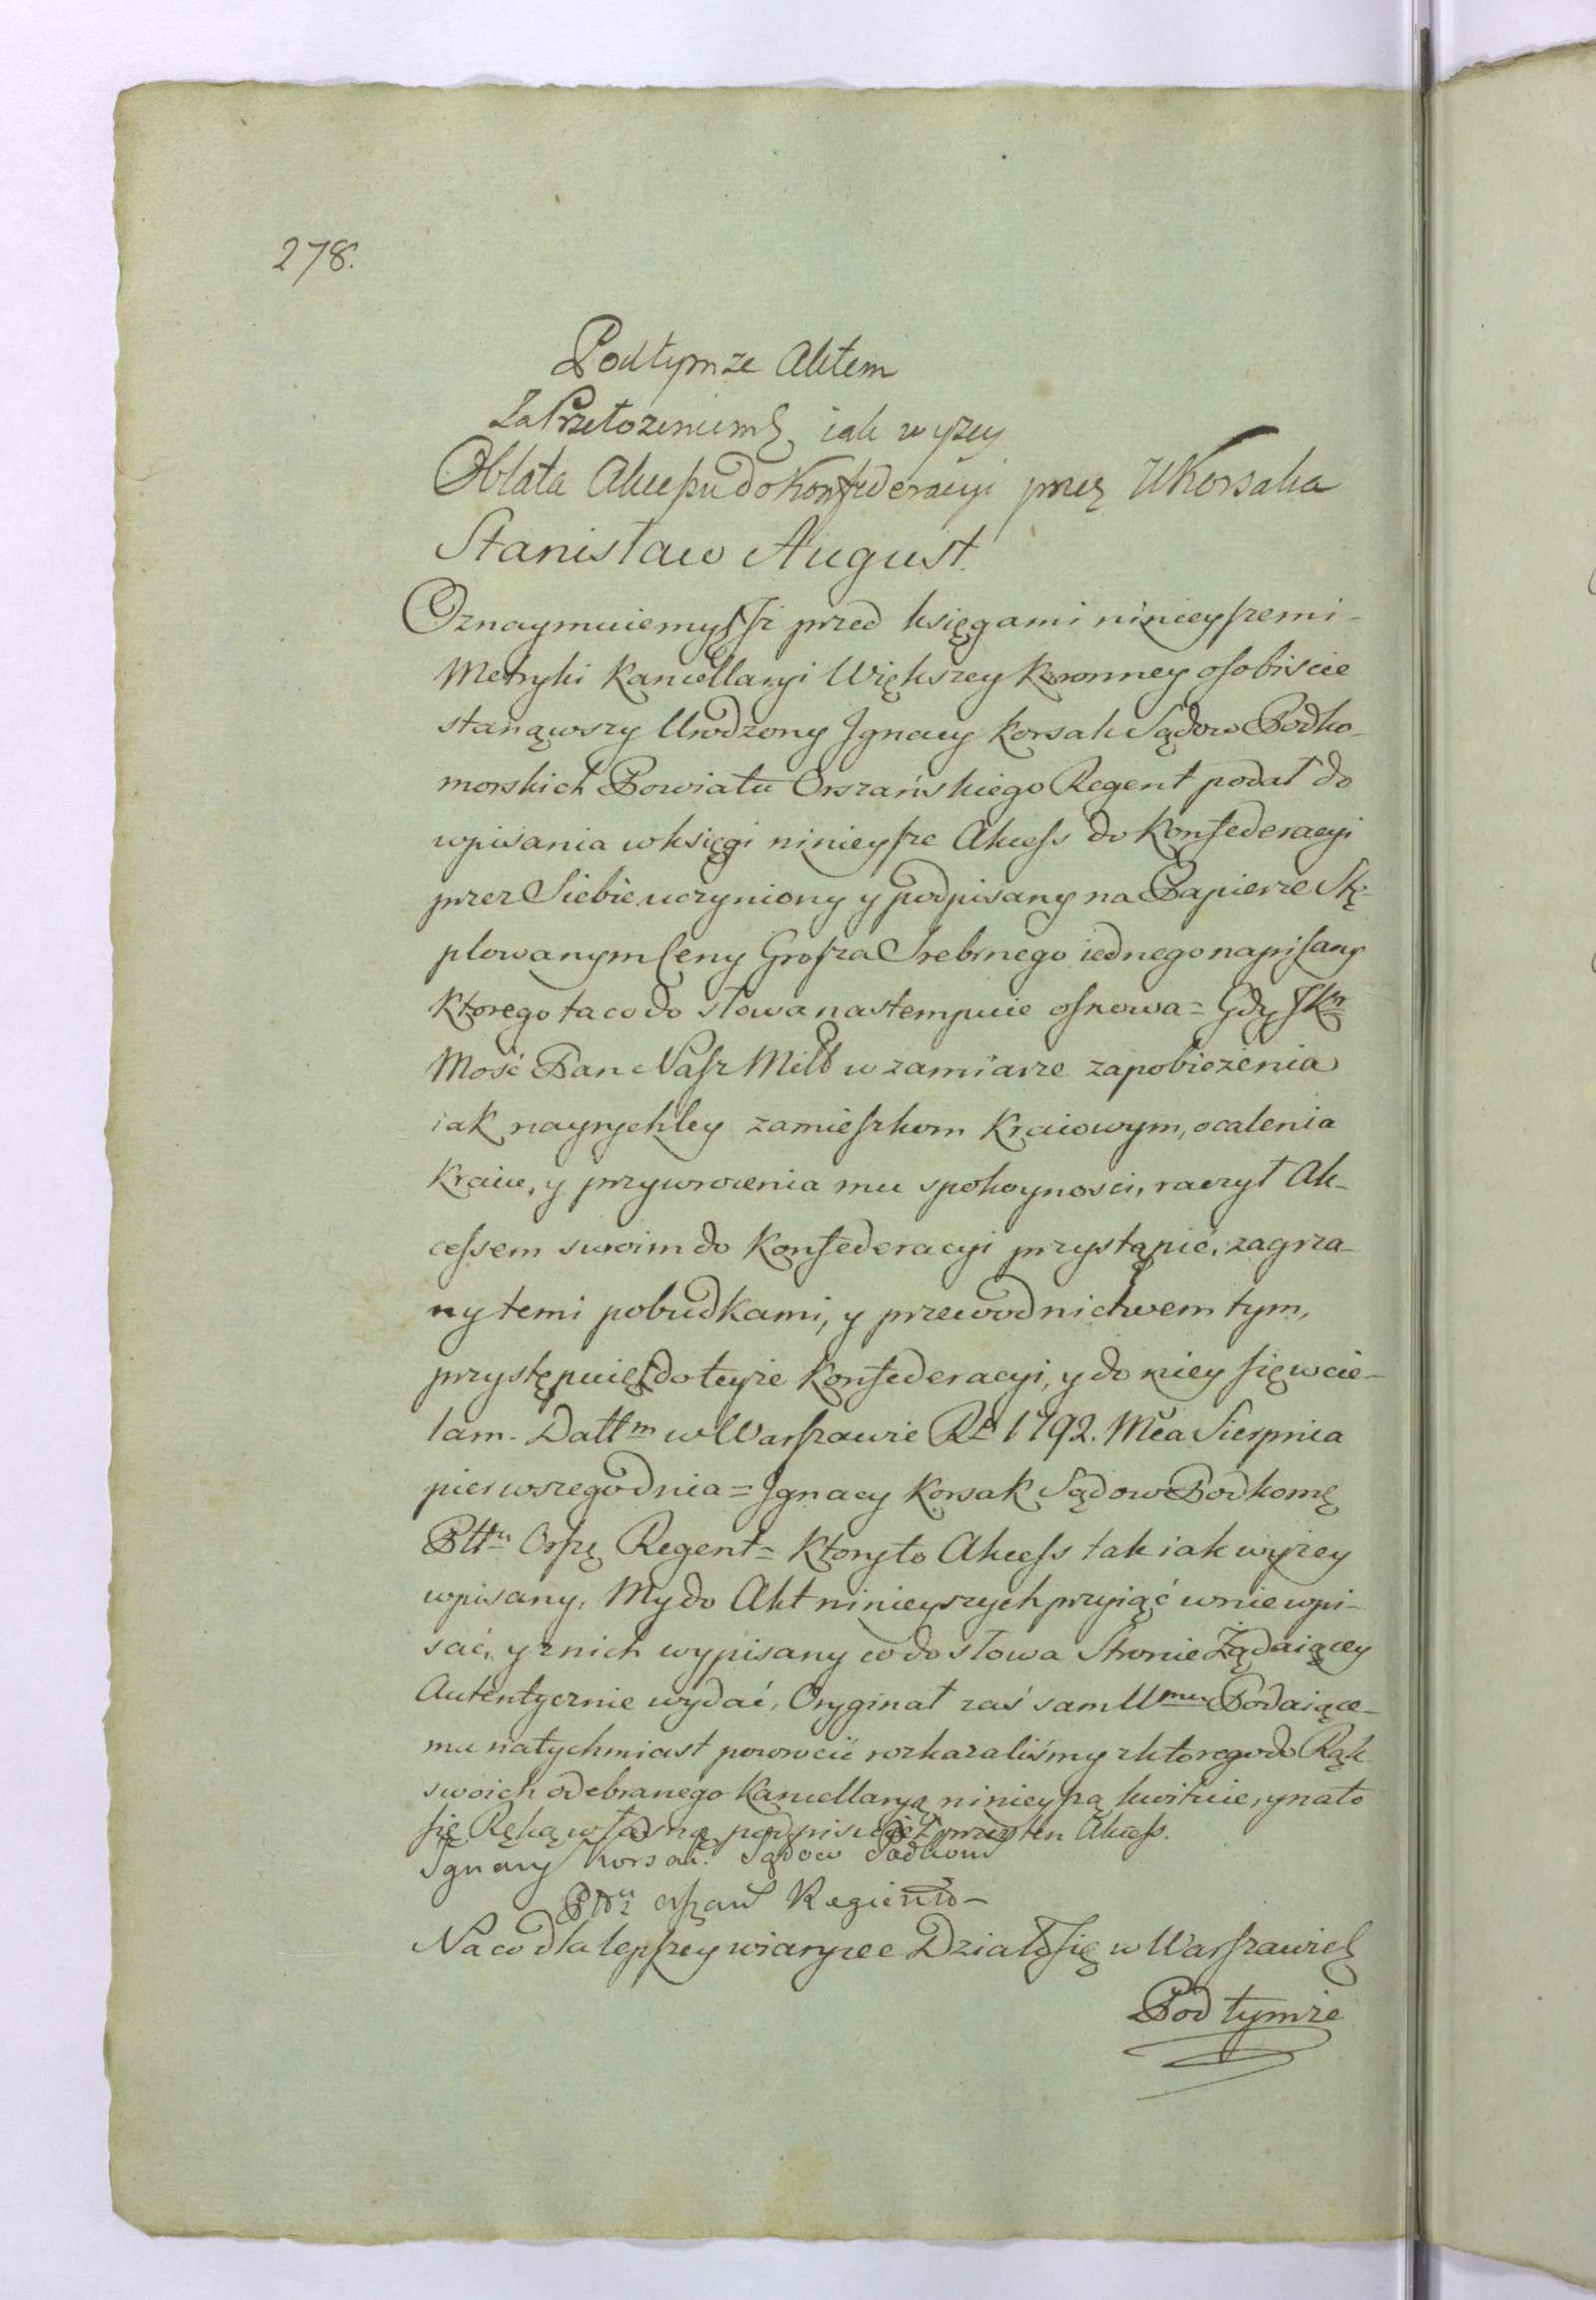 278.
Pod tymze Aktem
Za Przełozeniem iak wyzey
Oblata Akcessu do Konfederacyi przez U Korsaka
Stanisław August.
Oznaymuiemy Jż przed księgami ninieyszemi
Metryki Kancellaryi Większey Koronney osobiscie
stanąwszy Urodzony Jgnacy Korsak Sądow Podko-
morskich Powiatu Orszańskiego Regent podał do
wpisania w księgi ninieysze Akcess do Konfederacyi
przez Siebie uczyniony y podpisany na Papierze Stę-
plowanym Ceny Grosza Srebrnego iednego napisany
ktorego ta co do słowa nastempuie osnowa = Gdy JKr
Mość Pan Nasz Miłł w zamiarze zapobieżenia
iak nayrychley zamieszkom Kraiowym, ocalenia
Kraiu, y przywrocenia mu spokoynosci, raczył Ak-
cessem swoim do Konfederacyi przystąpić, zagrza-
ny temi pobudkami, y przewodnictwem tym,
przystępuię do teyże Konfederacyi, y do niey się wcie-
lam. Datt m w Warszawie Rku 1792. Mca Sierpnia
pierwszego dnia = Jgnacy Korsak Sądow Podkom
Pttu Orsz Regent = Ktory to Akcess tak iak wyżey
wpisany, My do Akt ninieyszych przyiąć w nie wpi-
sać, y z nich wypisany co do słowa Stronie Żądaiącey
Autentycznie wydać, Oryginał zaś sam Umu Podaiące-
mu natychmiast powrocić rozkazaliśmy z ktorego do Rąk
swoich odebranego Kancellaryą ninieyszą kwituie, y na to
się Ręką własną podpisuie przez ten Akcess.
Jgnacy Korsak. Sądow Podkom
Pttu Orszań Regient
Na co dla lepszey wiary zec Działo się w Warszawie
Pod tymże